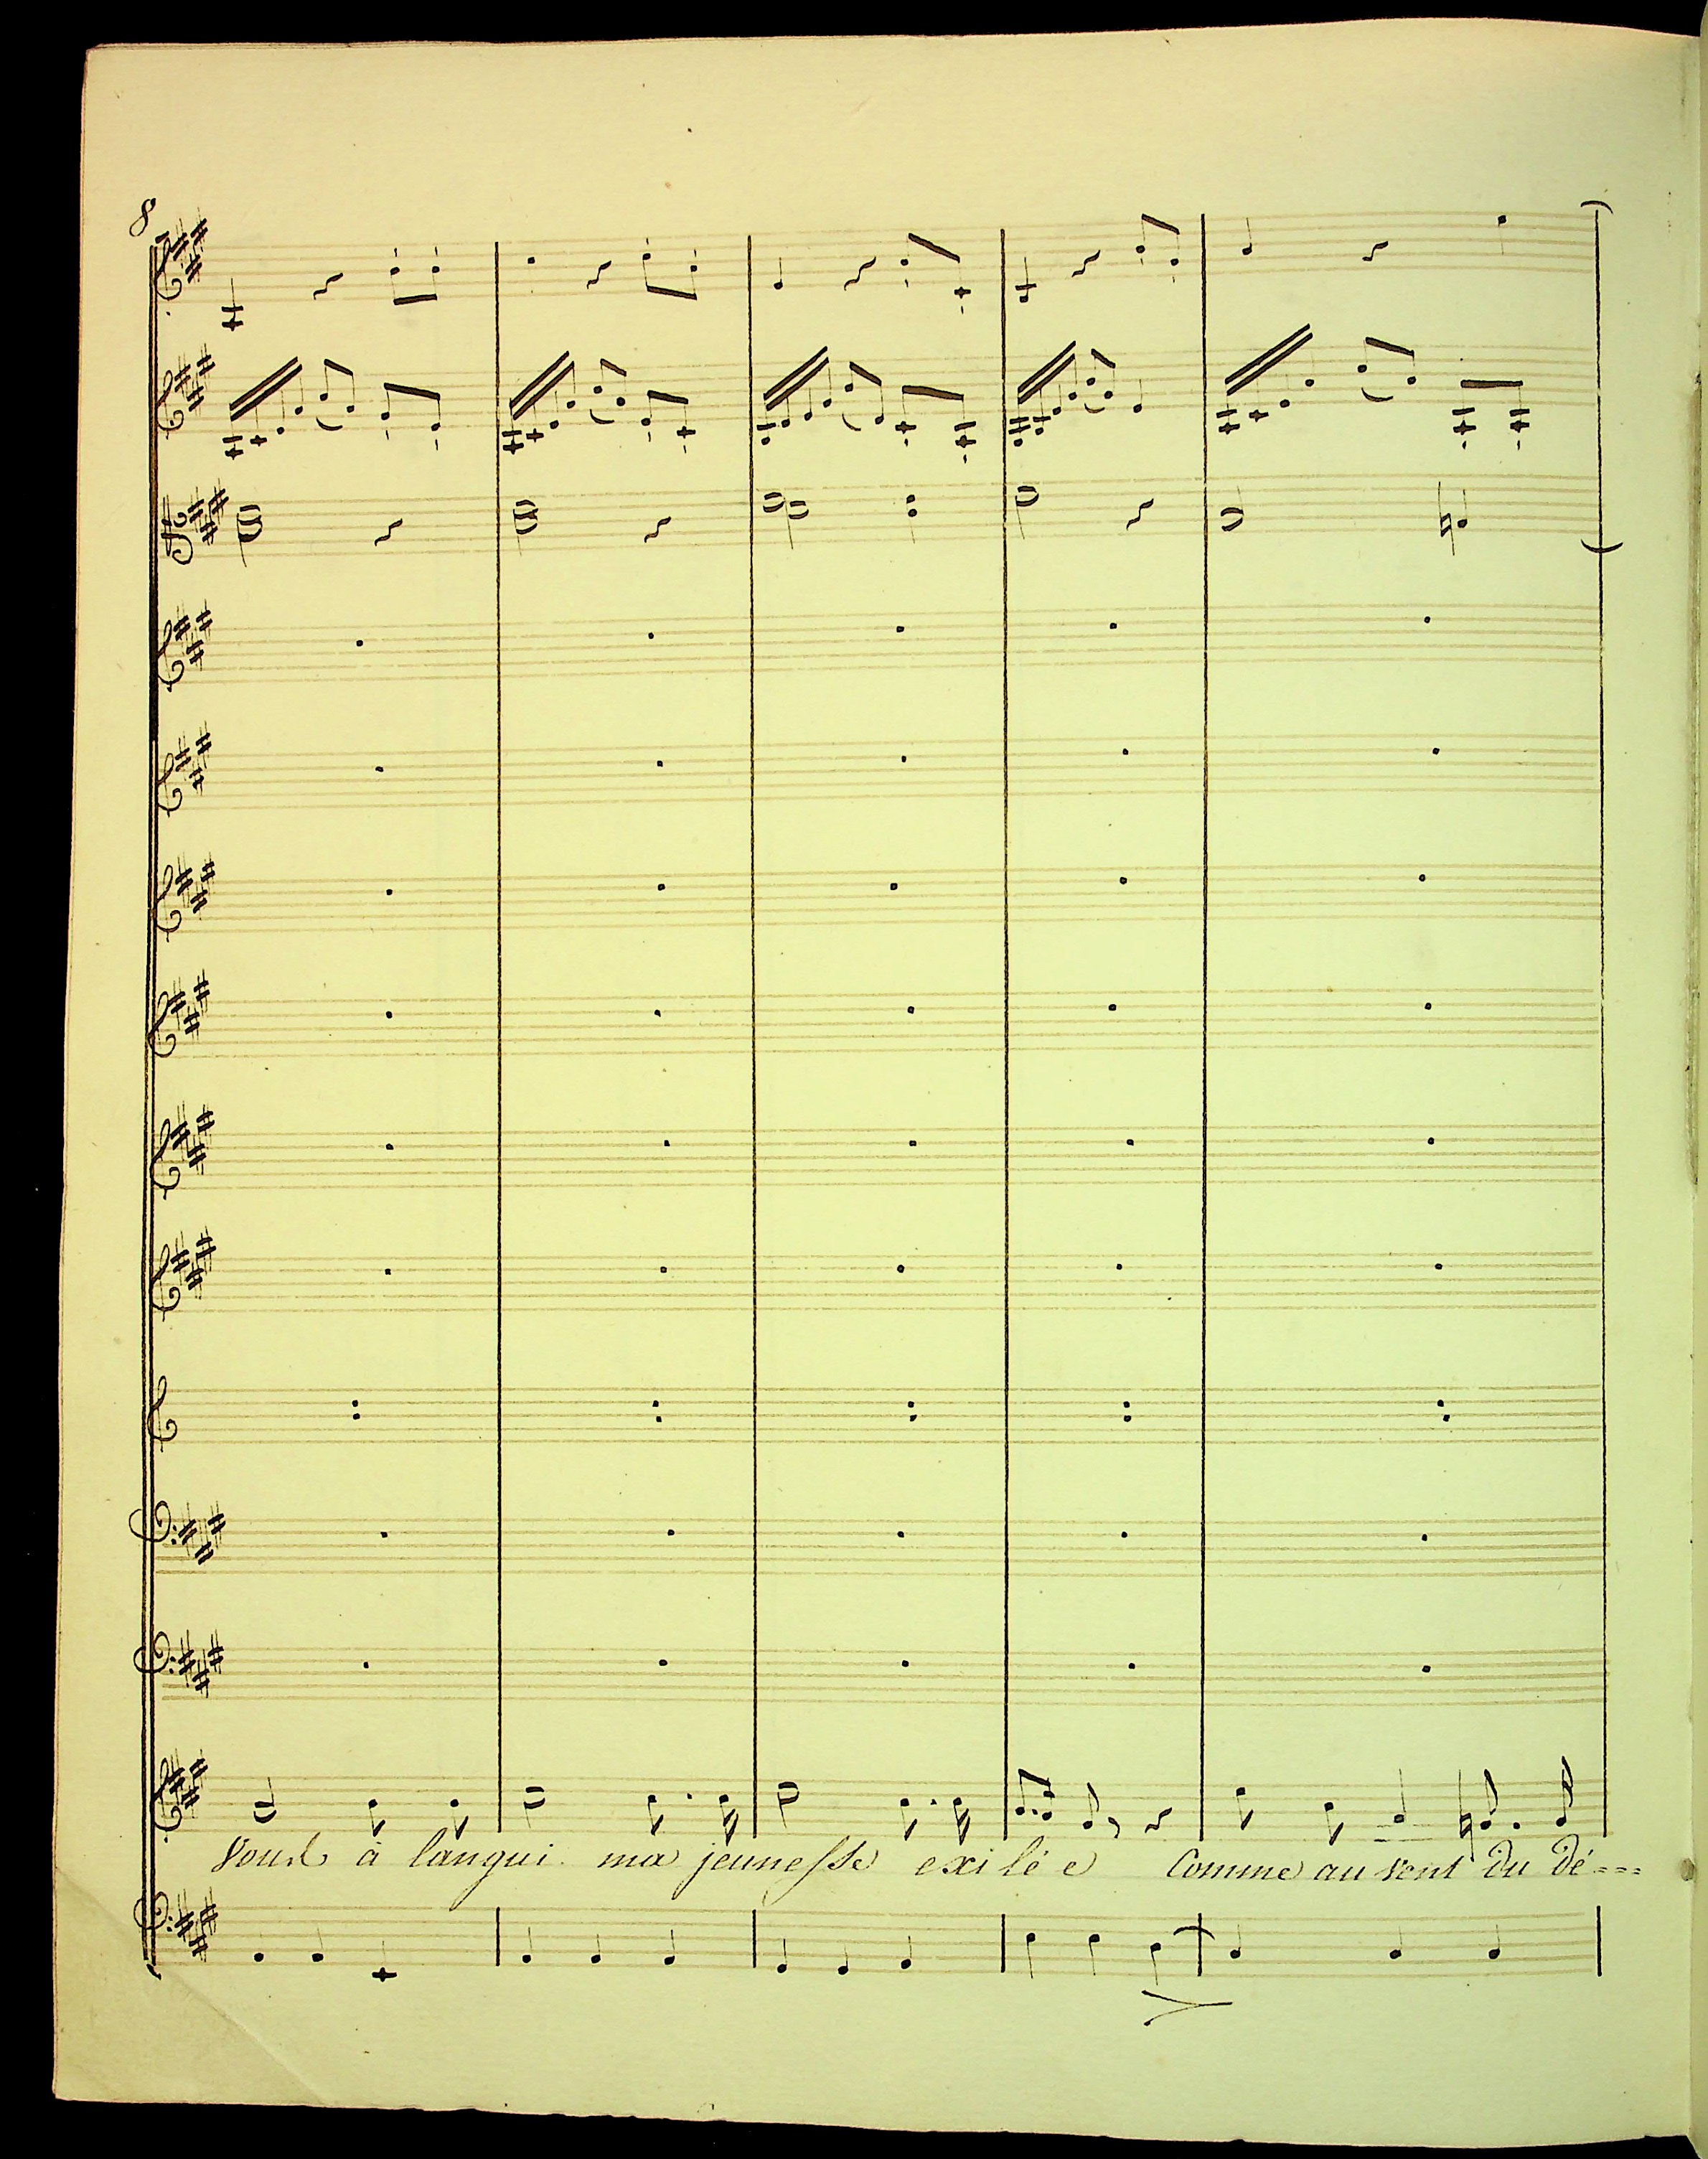 8
Vous à langui ma jeunesse exi lé e Comme au vent du dé---